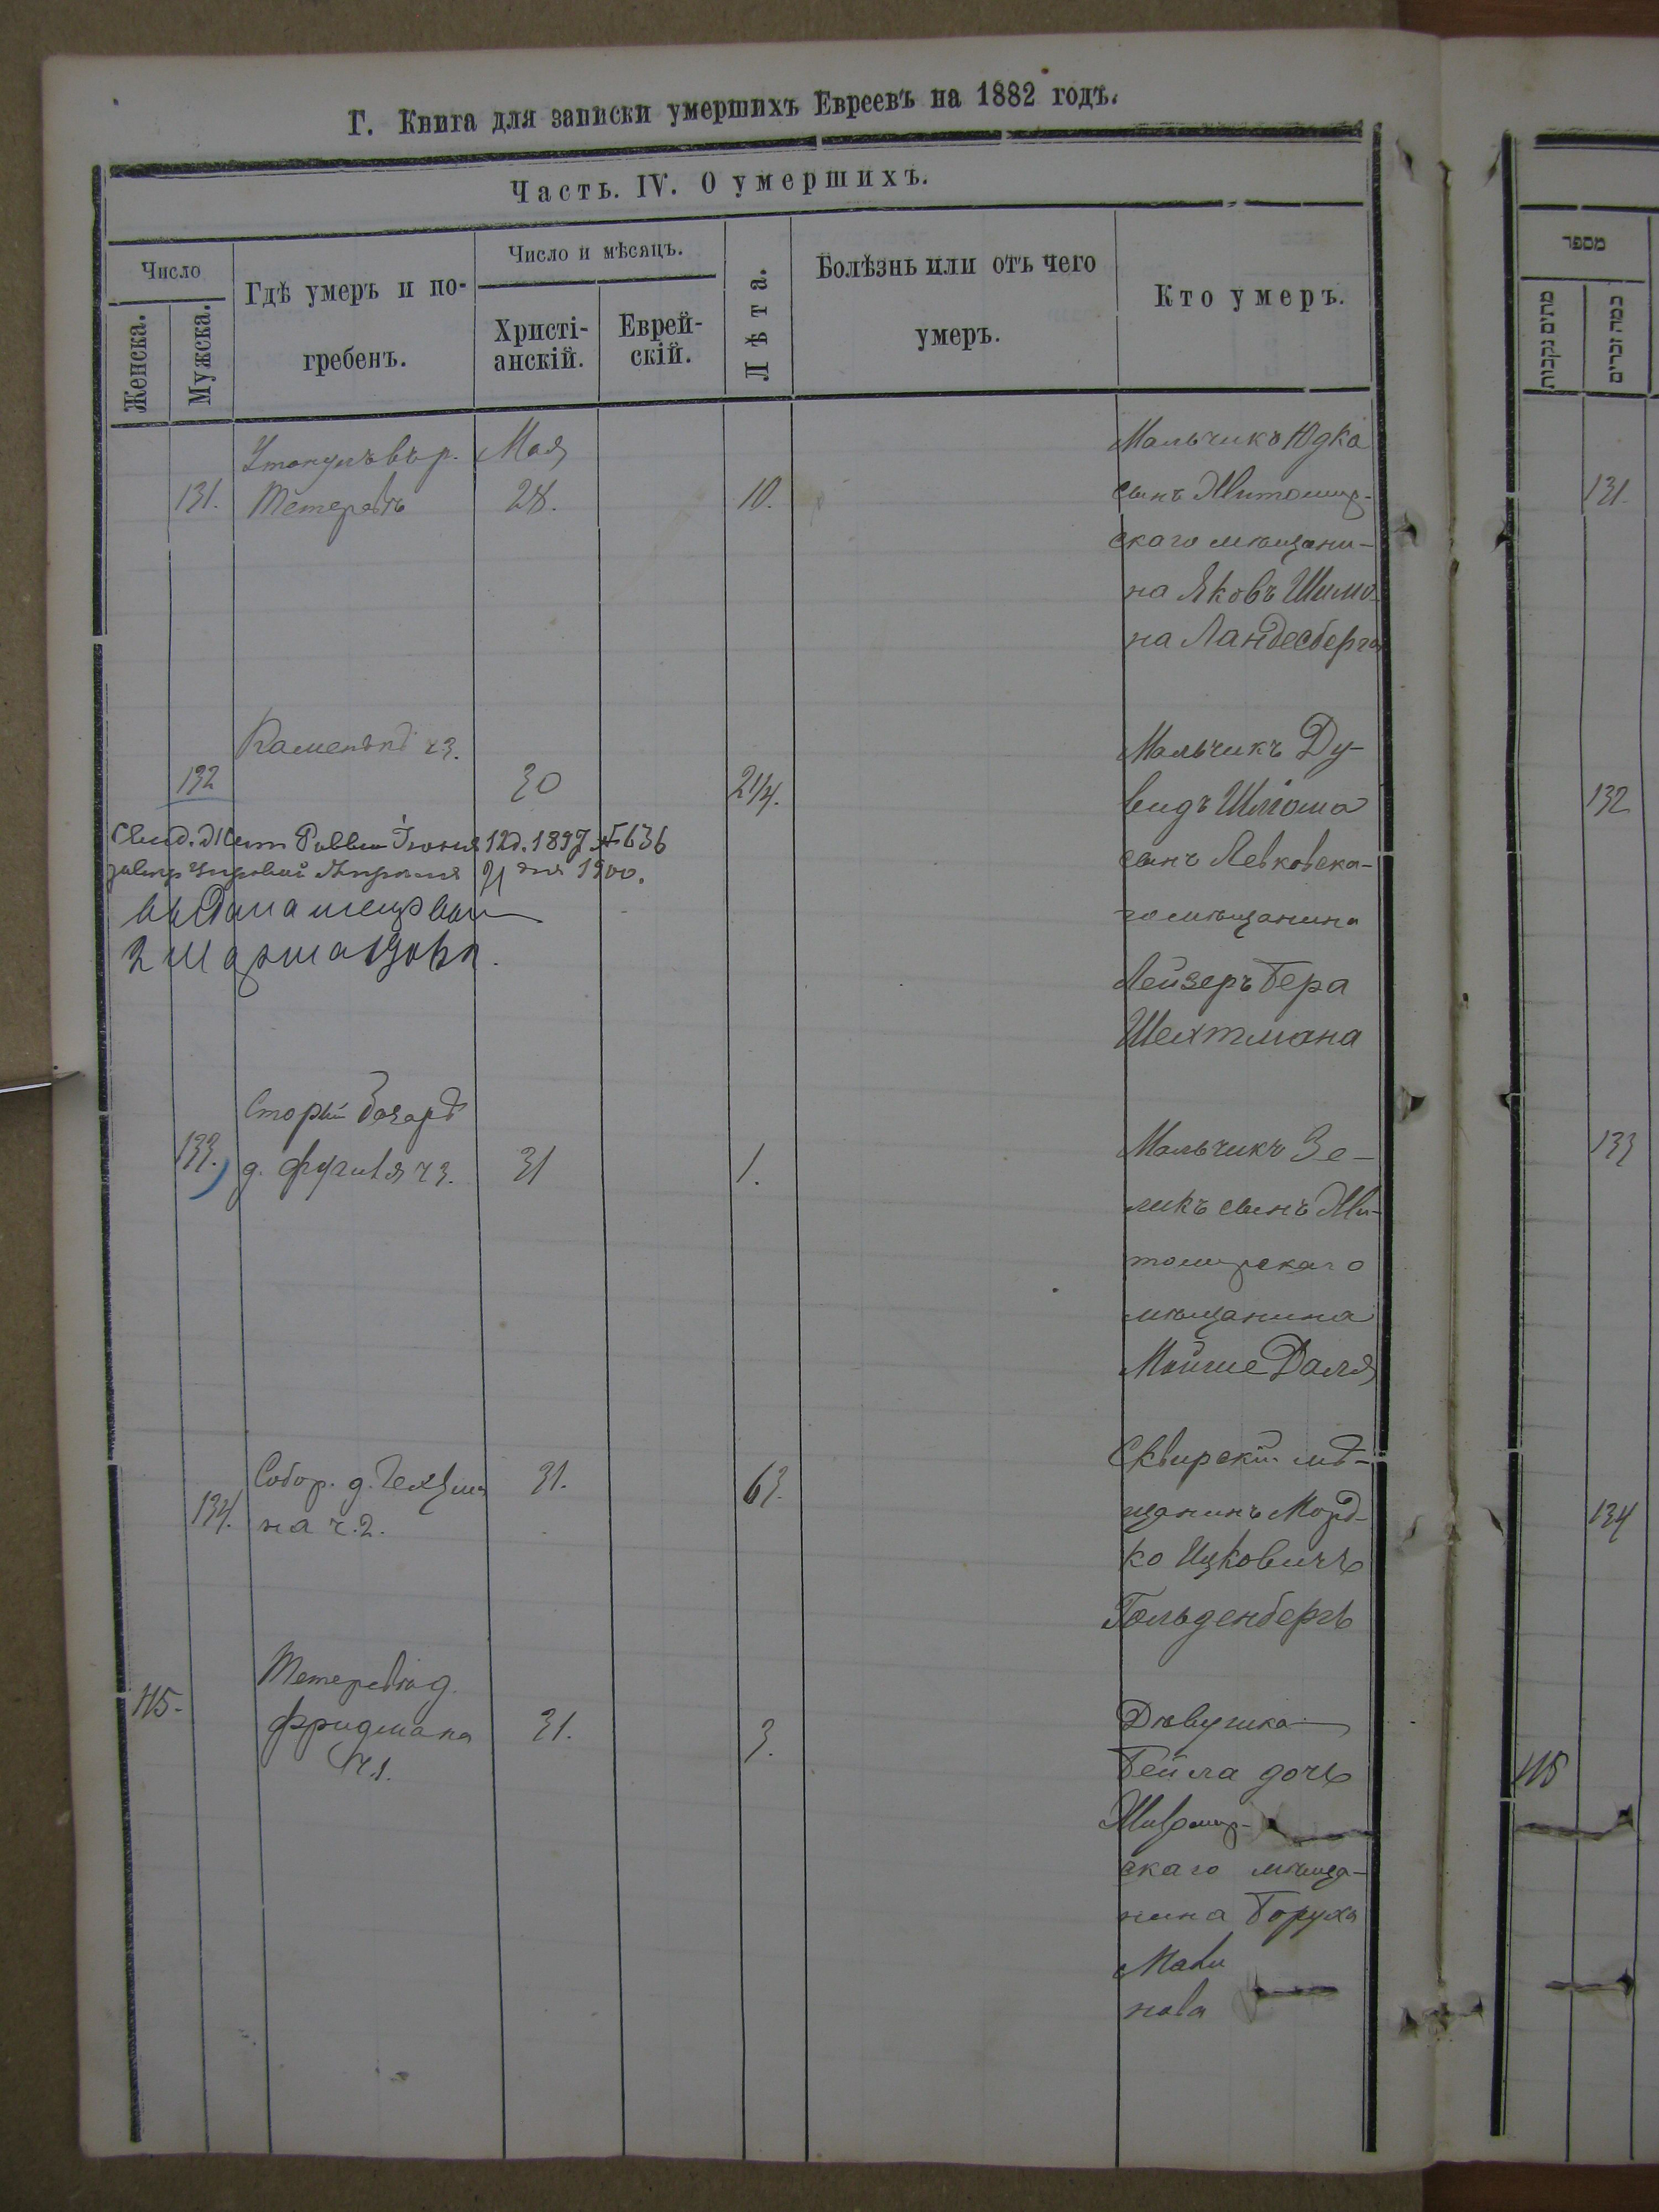 Г. Книга для записки умершихъ Евреевъ на 1882 годъ.
Часть. IV. О умершихъ.
Число
Женска.
Мужска.
Гдѣ умеръ и по-
гребенъ.
Число и мѣсяцъ.
Христі-
анскій.
Еврей-
скій.
Лѣта.
Болѣзнь или отъ чего
умеръ.
Кто умеръ.
131.
Утонулъ в р.
Тетеревъ
Мая
28.
10.
Мальчикъ Юдка
сынъ Житомир-
скаго мѣщани-
на Яковъ Шимо-
на Ландесберга
132
ч3.
30
2 1/4.
Мальчикъ Ду-
видъ Шліома
сынъ Левковска-
го мѣщанина
Лейзеръ Бера
Шехтмана
Іюня 12 д. 1897 № 636
21 дня 1900.
133.
Старый базаръ
д. ч 3.
31
1.
Мальчикъ Зе-
ликъ сынъ Жи-
томирскаго
мѣщанина
Мойше Даля
134.
Собор. д.
на ч. 2.
31.
63.
Сквирскій мѣ-
щанинъ Морд-
ко Ицковичъ
Гольденбергъ
115-
д.
Фридмана
ч. 1.
31.
3.
Дѣвушка
Бейла дочь
Житомир-
скаго мѣща-
нина Боруха
нова
מספר
מתים נקבות
כמה זכרים
131.
132
133
134
115